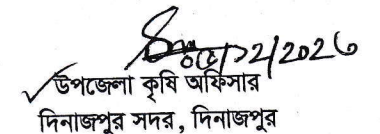 উপজেলা কৃষি অফিসার
দিনাজপুর সদর, দিনাজপুর